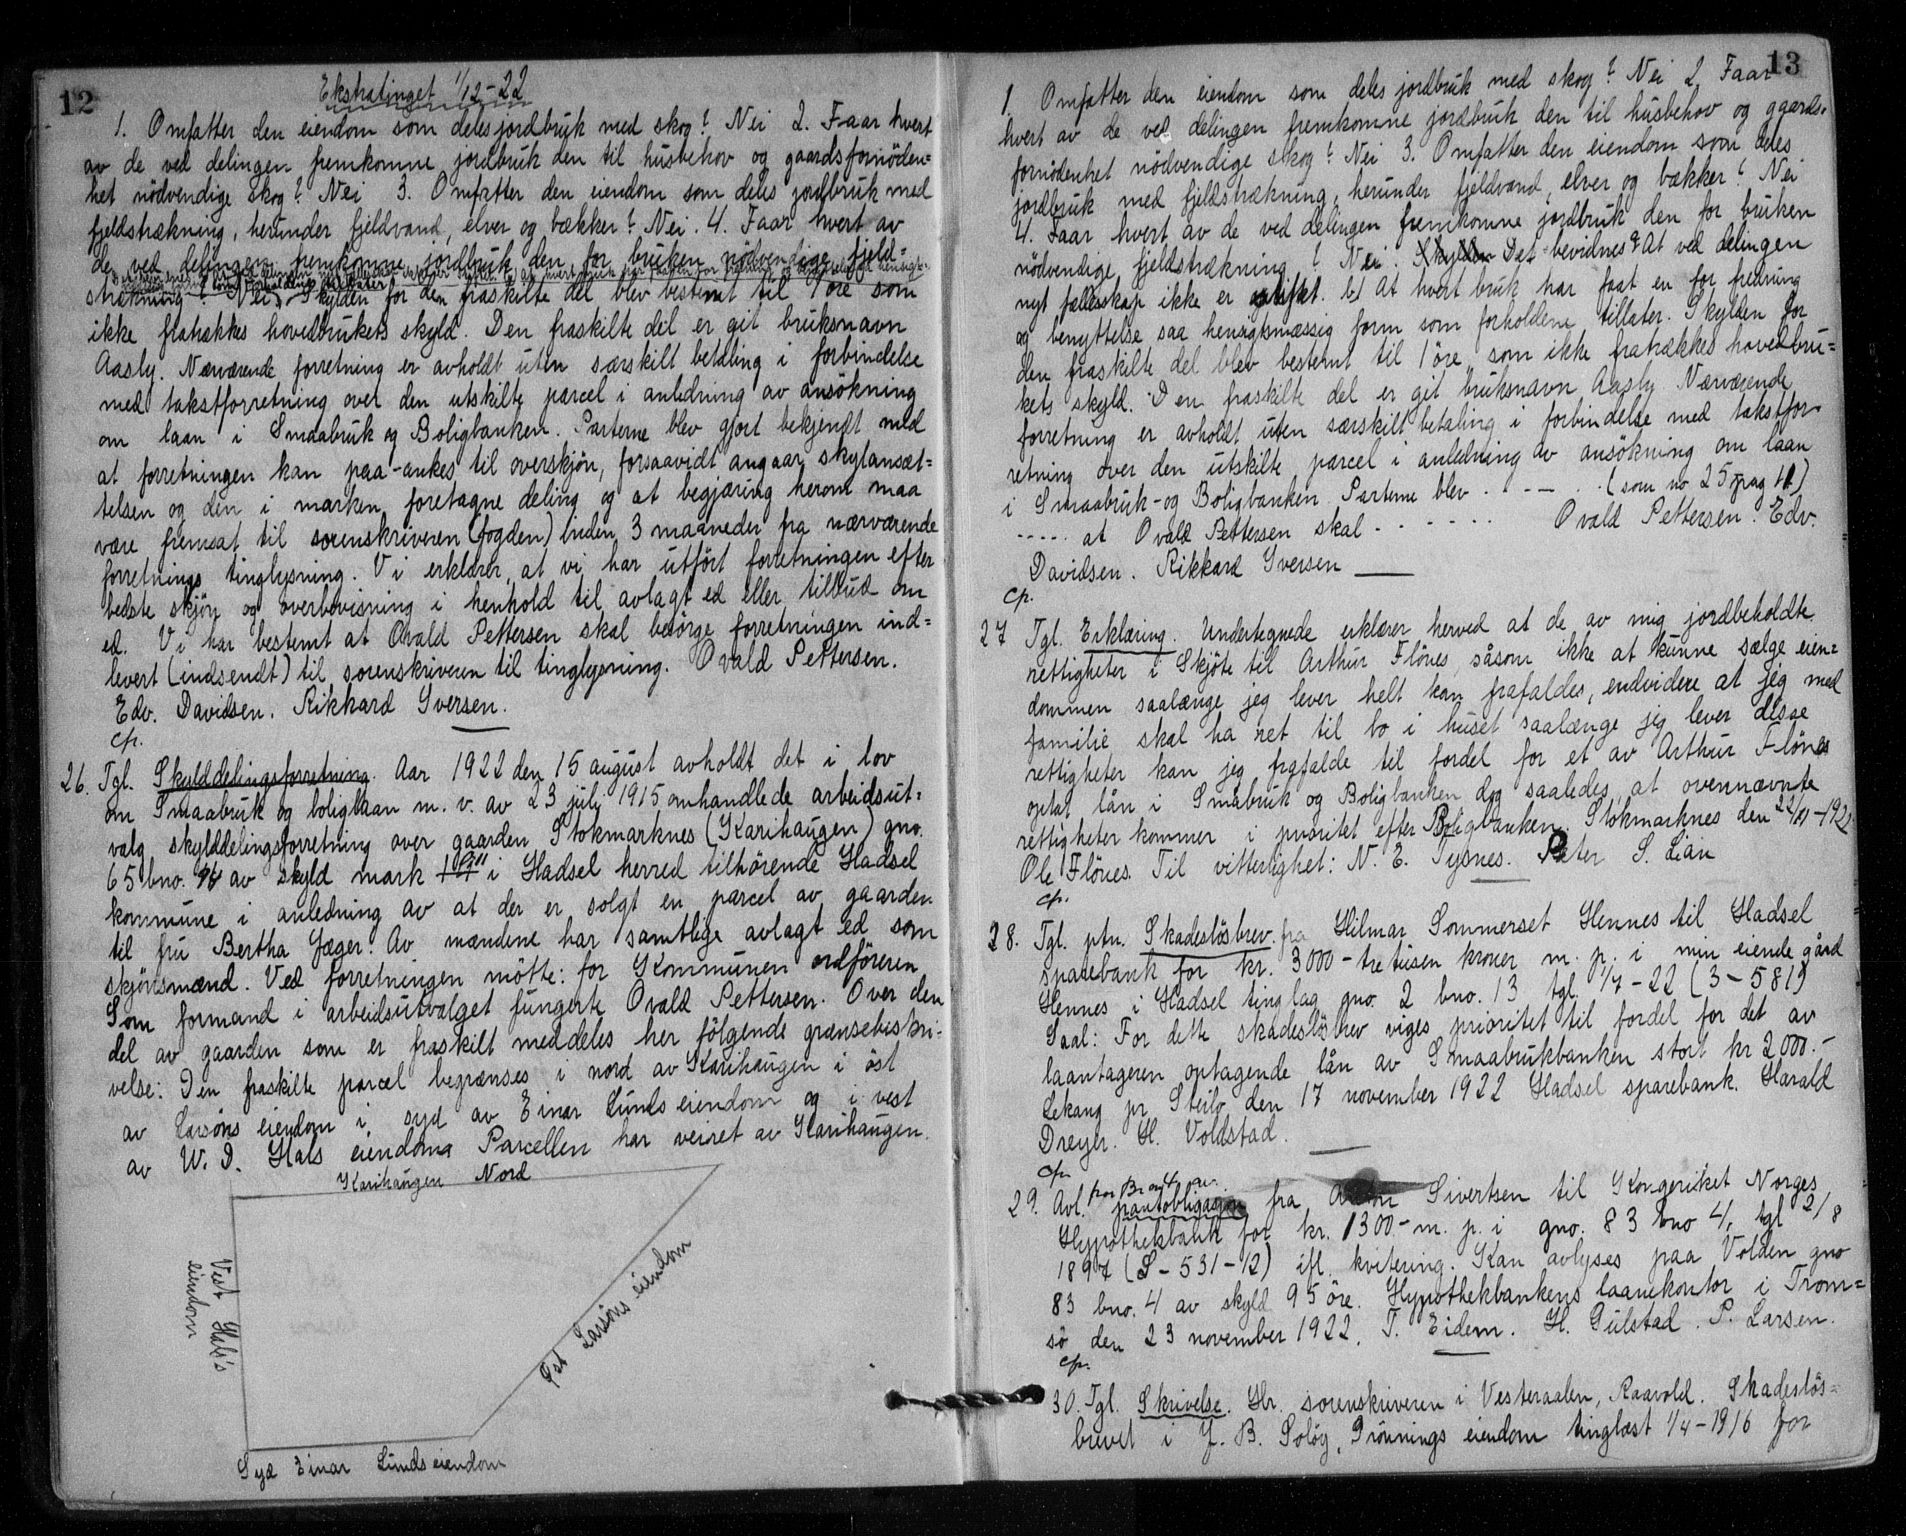 12
Ekstratinget 1/12-22
1. Omfatter den eiendom som deles jordbruk med skog? Nei 2. Faar hvert
av de ved delingen fremkomne jordbruk den til husbehov og gaardsfornöden=
het nödvendige skog? Nei 3. Omfatter den eiendom som deles jordbruk med
fjeldstrækning, herunder fjeldvand, elver og bækker? Nei. 4. Faar hvert av
de ved delingen fremkomne jordbruk den for bruken nödvendige fjeld=
strækning? Nei. Skylden for den fraskilte del blev bestemt til 1 öre som
ikke fratrækkes hovedbrukets skyld. Den fraskilte del er git bruksnavn
Aasly. Nærværende forretning er avholdt uten særskilt betaling i forbindelse
med takstforretning over den utskilte parcel i anledning av ansökning
om laan i Smaabruk og Boligbanken. Parterne blev gjort bekjendt med
at forretningen kan paa-ankes til overskjön, forsaavidt angaar skylansæt=
telsen og den i marken foretagne deling og at begjæring herom maa
være fremsat til sorenskriveren (fogden) inden 3 maaneder fra nærværende
forretnings tinglysning. Vi erklærer, at vi har utfört forretningen efter
bedste skjön og overbevisning i henhold til avlagt ed eller tilbud om
ed. Vi har bestemt at Ovald Pettersen skal besörge forretningen ind=
levert (indsendt) til sorenskriveren til tinglysning. Ovald Pettersen.
Edv. Davidsen. Rikkard Iversen.
cp.
26. Tgl. Skylddelingsforretning. Aar 1922 den 15 august avholdt det i lov
om Smaabruk og boliglaan m. v. av 23 july 1915 omhandlede arbeidsut=
valg skylddelingsforretning over gaarden Stokmarknes (Karihaugen) gno.
65 bno. 94 av skyld mark i Hadsel herred tilhörende Hadsel
kommune i anledning av at der er solgt en parcel av gaarden
til fru Bertha Jæger. Av mændene har samtlige avlagt ed som
skjönsmænd. Ved forretningen mötte: for Kommunen ordföreren
Som formand i arbeidsutvalget fungerte Ovald Pettersen. Over den
del av gaarden som er fraskilt meddeles her fölgende grænsebeskri=
velse: Den fraskilte parcel begrænses i nord av Karihaugen i öst
av Larsöns eiendom i syd av Einar Lunds eiendom og i vest
av W. D. Hals eiendom. Parcellen har veiret av Karihaugen.
Karihaugen Nord
Vest Hals's
eiendom
Öst Larsöns eiendom
Syd Einar Lunds eiendom
13
1. Omfatter den eiendom som deles jordbruk med skog? Nei 2 Faar
hvert av de ved delingen fremkomne jordbruk den til husbehov og gaards=
fornödenhet nödvendige skog? Nei 3. Omfatter den eiendom som deles
jordbruk med fjeldstrækning, herunder fjeldvand, elver og bækker? Nei
4. Faar hvert av de ved delingen fremkomne jordbruk den for bruken
nödvendige fjeldstrækning? Nei. Skylden Det bevidnes: at ved delingen
nyt fælleskap ikke er opstaat. b) At hvert bruk har faat en for fredning
og benyttelse saa hensigtsmæssig form som forholdene tillater. Skylden for
den fraskilte del blev bestemt til 1 öre, som ikke fratrækkes hovedbru=
kets skyld. Den fraskilte del er git bruksnavn Aasly Nærværende
forretning er avholdt uten særskilt betaling i forbindelse med takstfor
retning over den utskilte parcel i anledning av ansökning om laan
i Smaabruk-og Boligbanken. Parterne blev . . — . . (som no 25 pag 11)
. . . . . at Ovald Pettersen skal . . . . . . . Ovald Pettersen. Edv.
Davidsen. Rikkard Iversen
cp.
27 Tgl. Erklæring. Undertegnede erklærer herved at de av mig jordbeholdte
rettigheter i Skjöte til Arthur Flönes, såsom ikke at kunne sælge eien=
dommen saalænge jeg lever helt kan frafaldes, endvidere at jeg med
familie skal ha ret til bo i huset saalænge jeg lever disse
rettigheter kan jeg frafalde til fordel for et av Arthur Flönes
optat lån i Småbruk og Boligbanken dog saaledes, at ovennævnte
rettigheter kommer i prioritet efter Boligbanken. Stokmarknes den 22/11-1922
Ole Flönes. Til vitterlighet: N. E. Tysnes. Peter S. Lian
cp.
28. Tgl. ptn. Skadeslösbrev fra Hilmar Sommerset Hennes til Hadsel
sparebank for kr. 3000-tretusen kroner m. p. i min eiende gård
Hennes i Hadsel tinglag gno. 2 bno. 13 tgl. 1/7-22 (3-581)
Saal: For dette skadeslösbrev viges prioritet til fordel for det av
laantageren optagende lån av Smaabrukbanken stort kr 2000.-
Lekang pr Steilo den 17 november 1922 Hadsel sparebank. Harald
Dreyer. H. Voldstad.
cp.
29. Avl. pantobligasjon fra Sivertsen til Kongeriket Norges
Hypothekbank for kr. 1300- m. p. i gno. 83 bno 4, tgl 2/8
1897 (S-531-12) ifl. kvitering. Kan avlyses paa Volden gno
83 bno. 4 av skyld 95 öre. Hypothekbankens laanekontor i Trom=
sö den 23 november 1922. T. Eidem. H. Gulstad. P. Larsen.
cp.
30. Tgl. Skrivelse. Hr. sorenskriveren i Vesteraalen, Raavold. Skadeslös=
brevet i J. B. Solöy, Grönnings eiendom tinglæst 1/4-1916 for